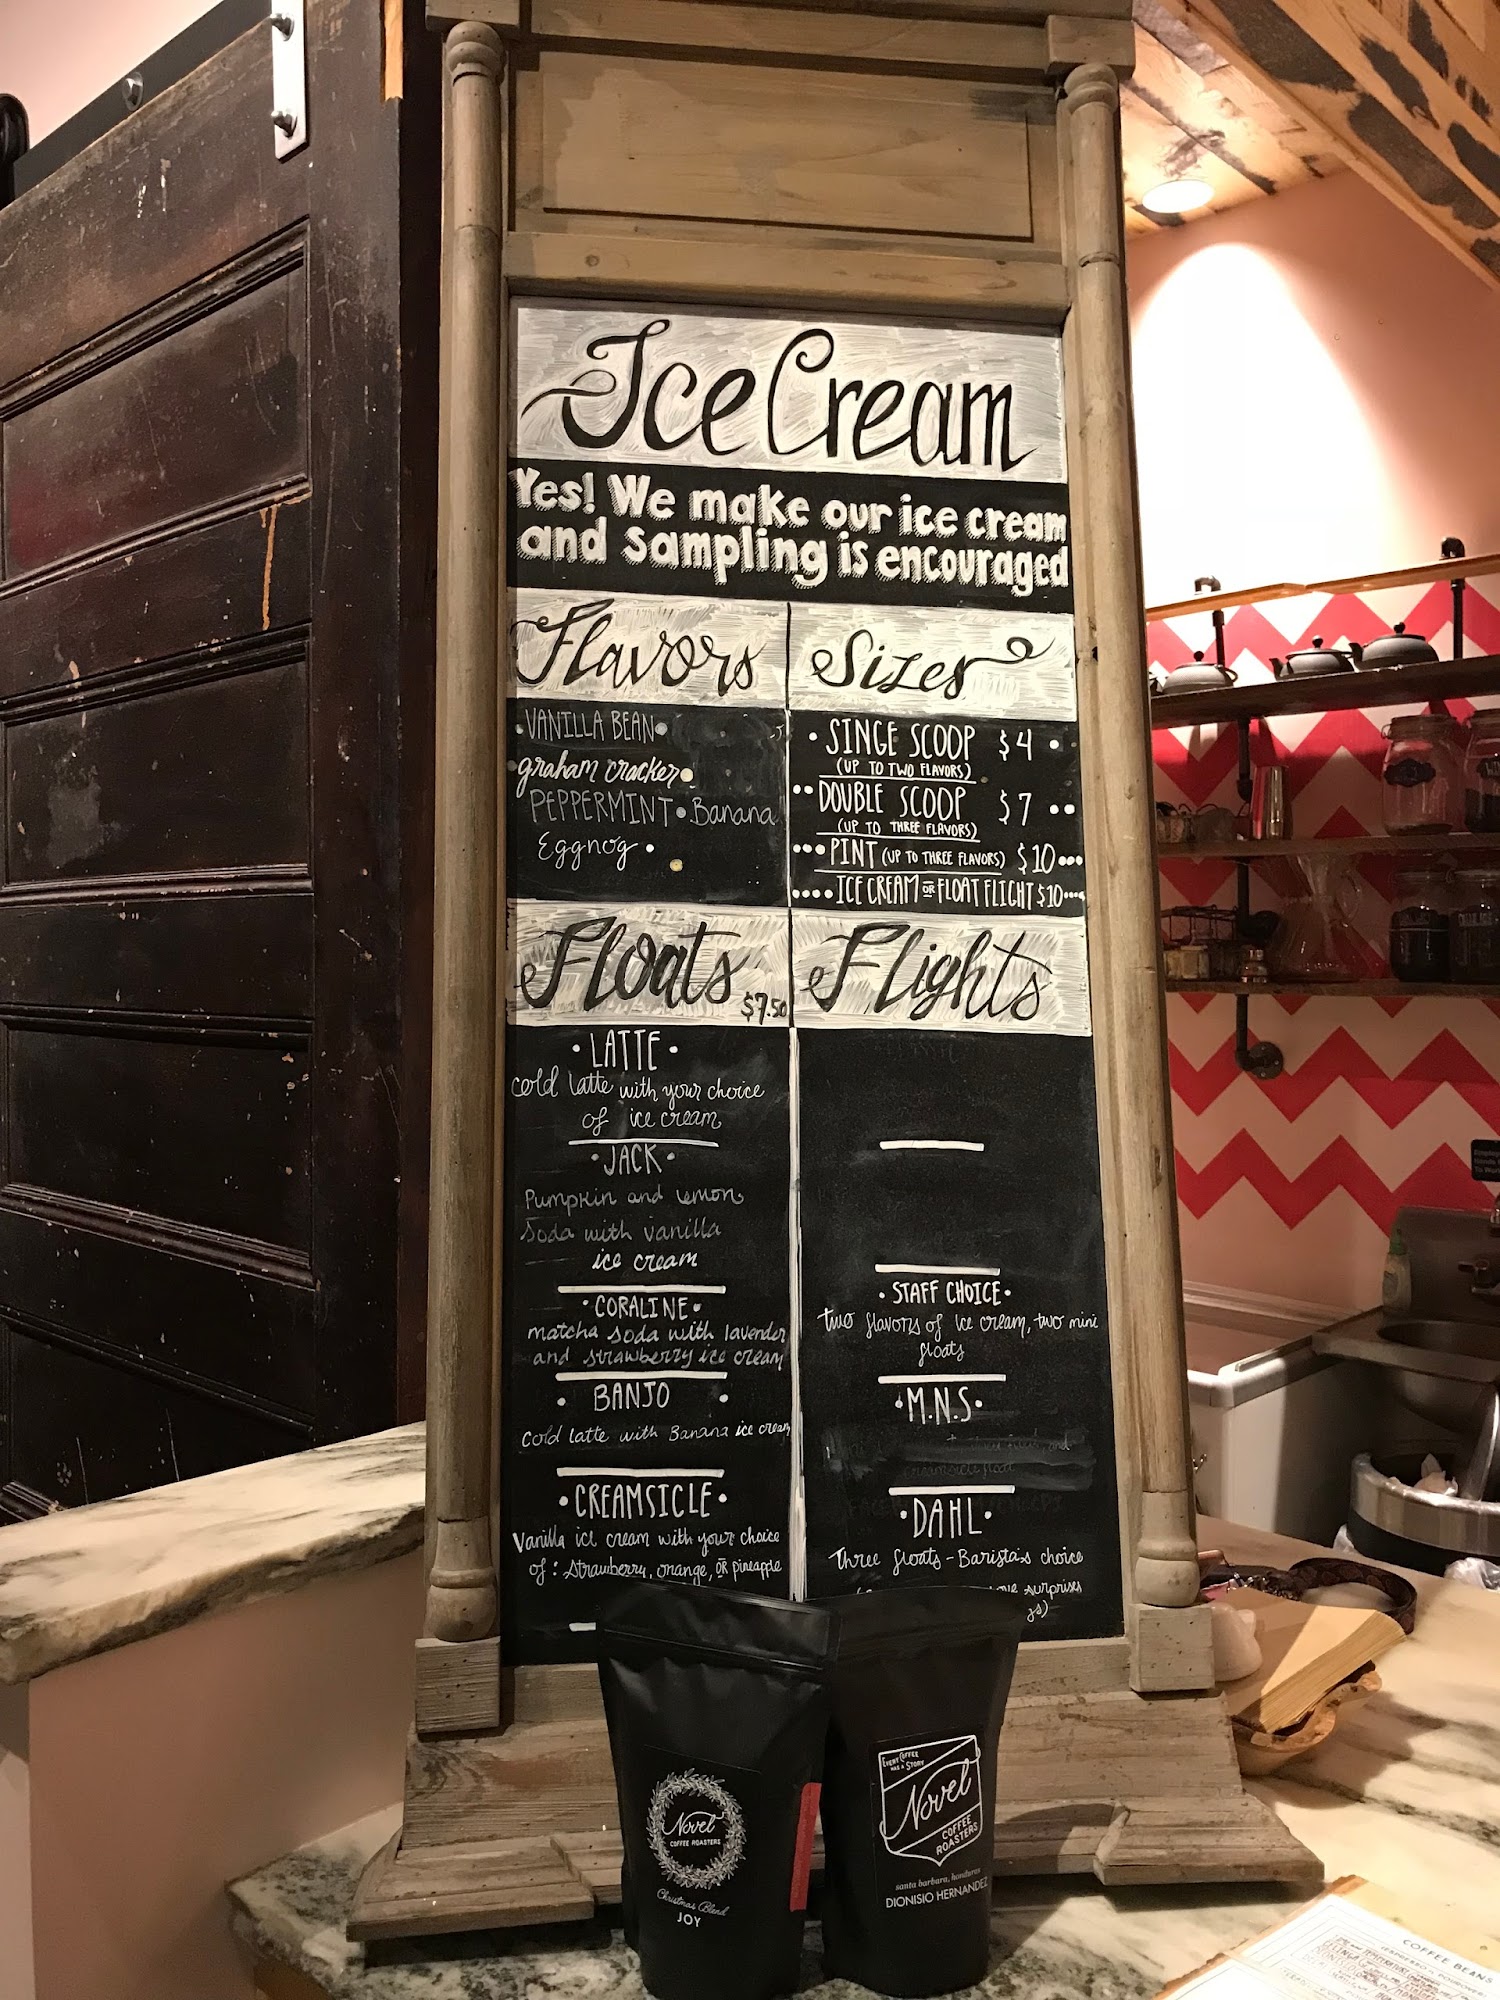 Ice Cream
Yes! We make our ice cream
and sampling is encouraged
Flavors
• VANILLA BEAN •
• graham cracker •
PEPPERMINT • Banana
Eggnog •
Sizes
• SINGE SCOOP $4 •
(UP TO TWO FLAVORS)
•• DOUBLE SCOOP $7 ••
(UP TO THREE FLAVORS)
••• PINT (UP TO THREE FLAVORS) $10 •••
•••• ICE CREAM OR FLOAT FLIGHT $10 ••••
Floats $7.50
• LATTE •
cold latte with your choice
of ice cream
• JACK •
Pumpkin and lemon
soda with vanilla
ice cream
• CORALINE •
matcha soda with lavender
and strawberry ice cream
• BANJO •
cold latte with Banana ice cream
• CREAMSICLE •
Vanilla ice cream with your choice
of: strawberry, orange, OR pineapple
Flights
• STAFF CHOICE •
two flavors of ice cream, two mini
floats
• M.N.S •
creamsicle float
• DAHL •
Three floats - Barista's choice
surprises
Novel
COFFEE ROASTERS
Christmas Blend
JOY
EVERY COFFEE
HAS A STORY
Novel
COFFEE
ROASTERS
santa barbara, honduras
DIONISIO HERNANDEZ
COFFEE BEANS